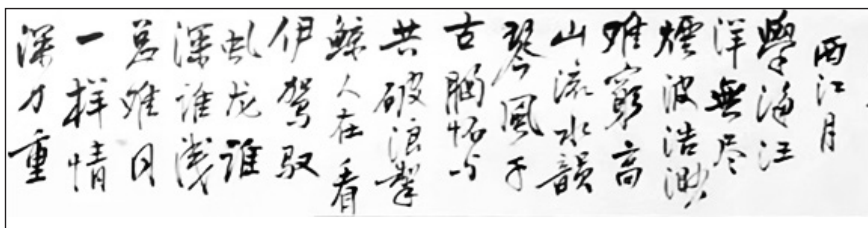 西江月
學海汪
洋無尽
煙波浩渺
难窮高
山流水韻
琴風千
古胸怀与
共破浪擎
鲸人在看
伊驾驭
虬龙谁
深谁浅
总难同
一样情
深力重